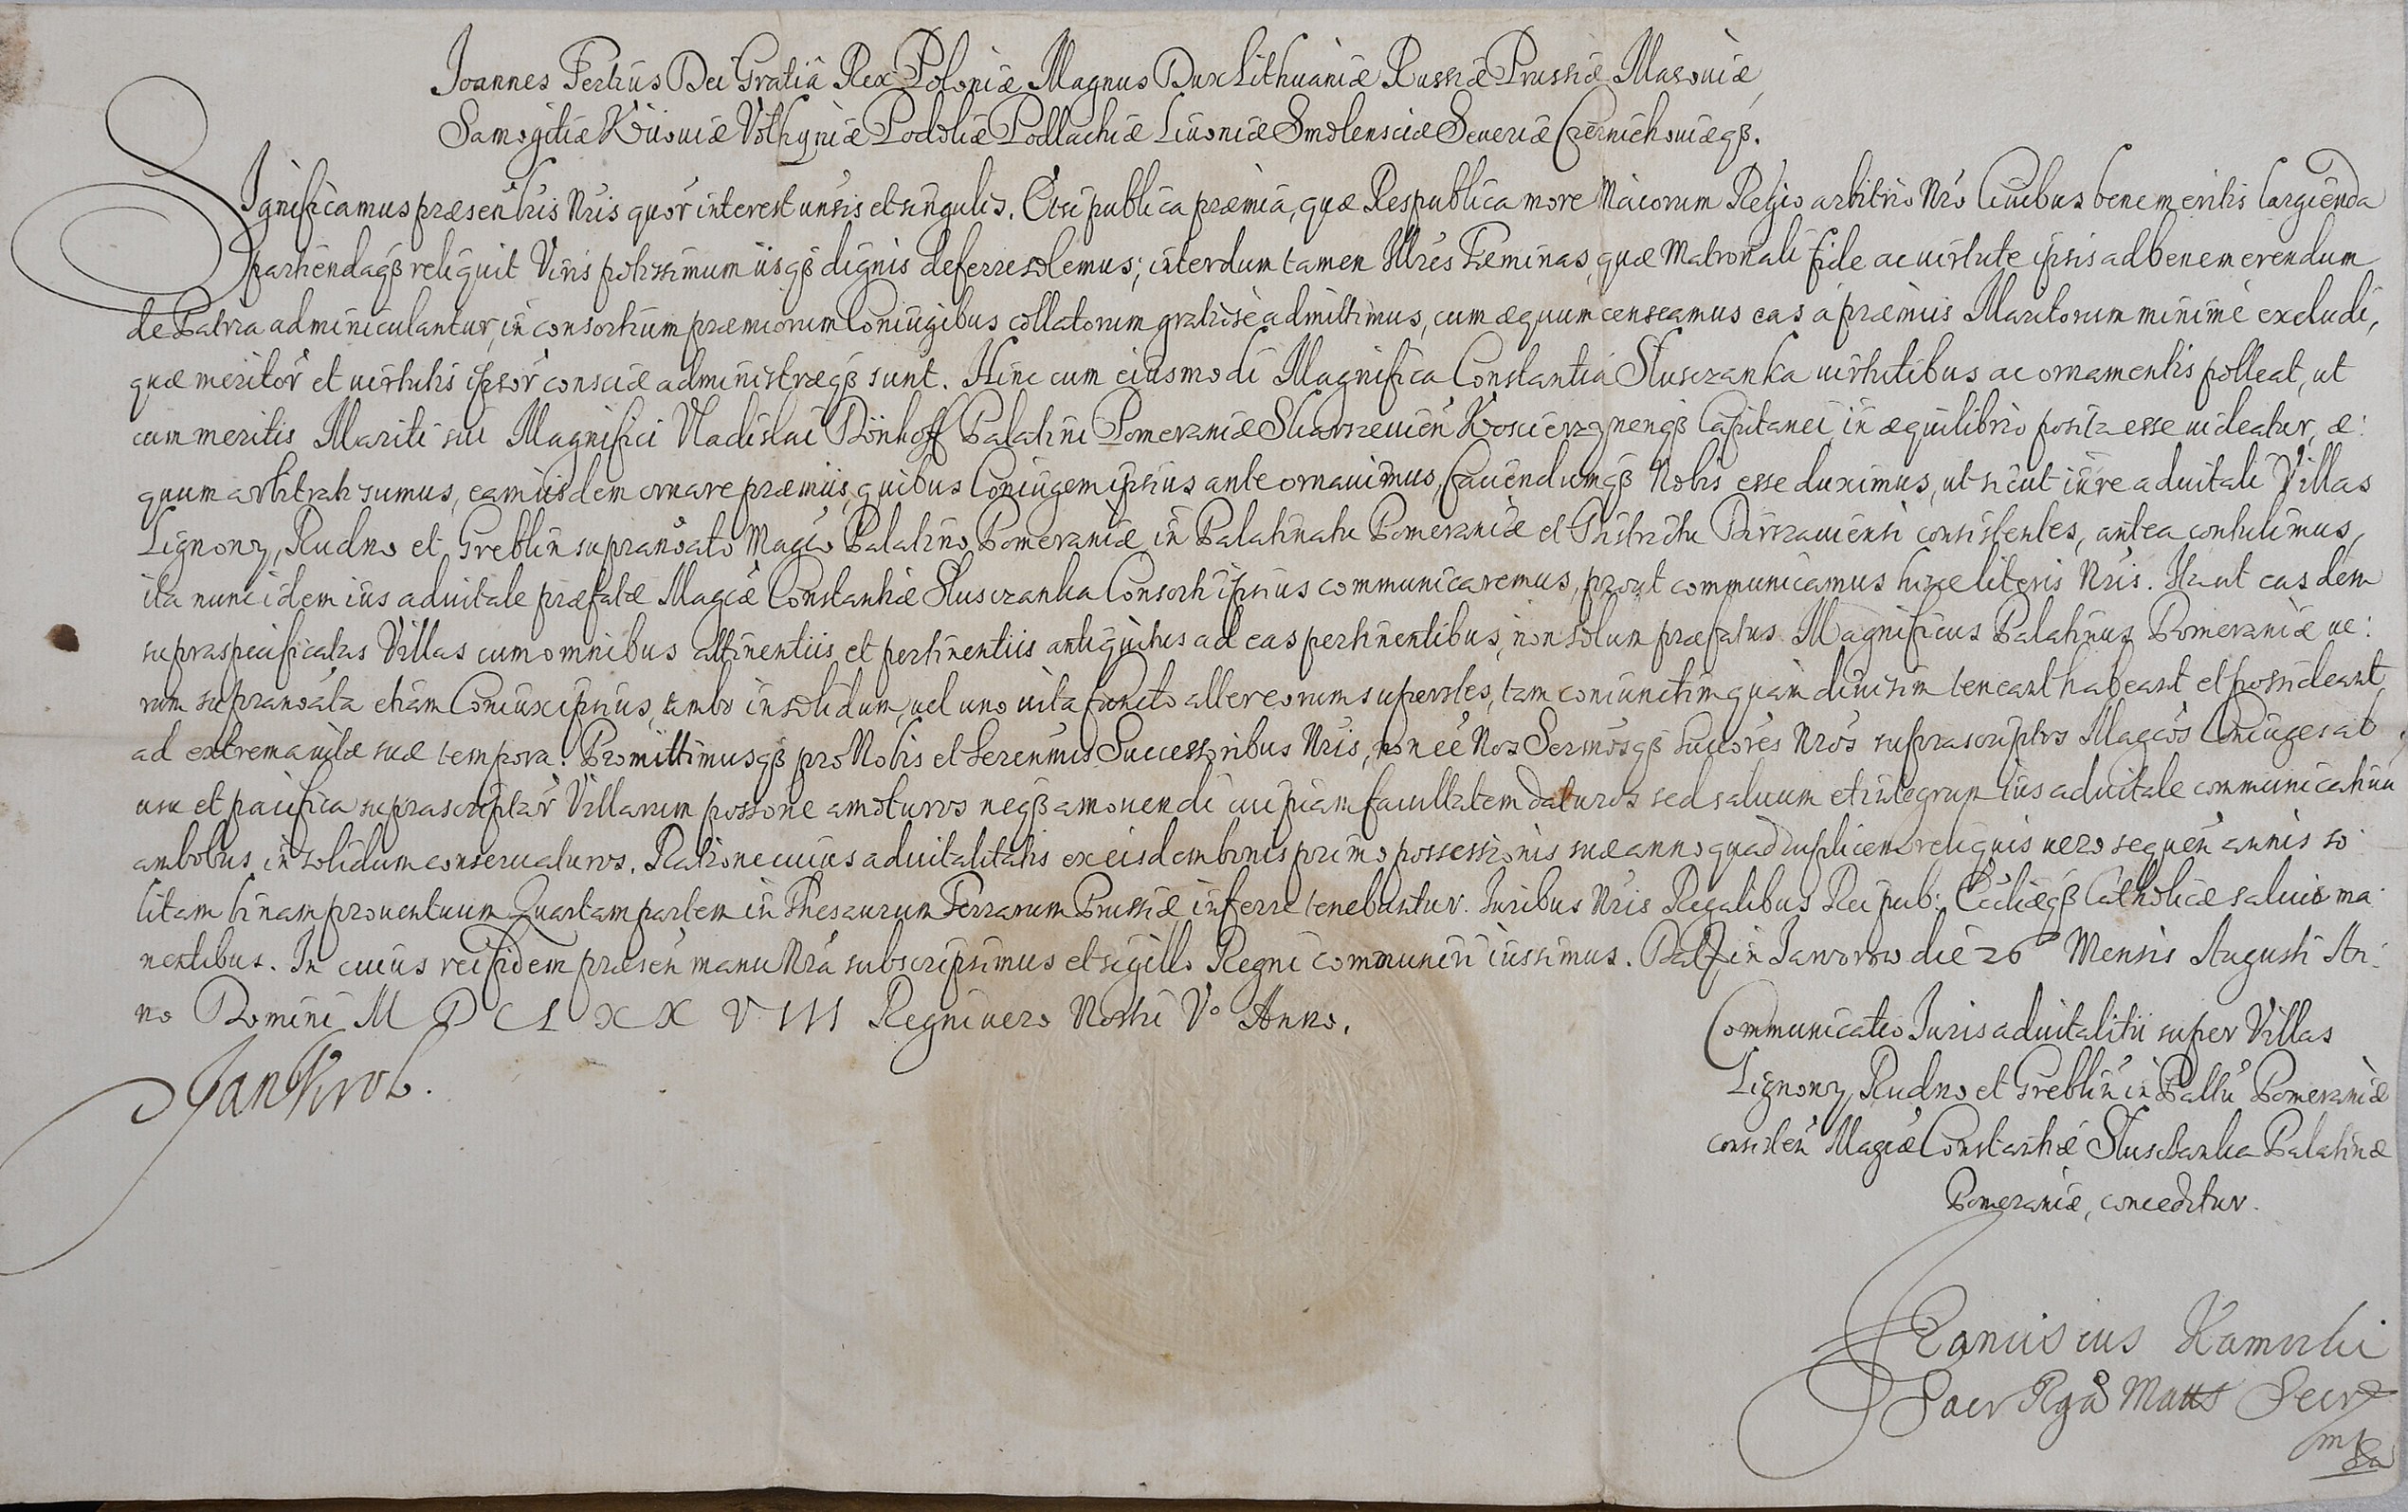 Joannes Tertius Dei Gratiâ Rex Poloniæ Magnus Dux Lithuaniæ Russiæ Prussiæ Masoviæ,
Samogitiæ Kiioviæ Volhyniæ Podoliæ Podlachiæ Livoniæ Smolensciæ Severiæ Czernichoviæqꝫ.
Significamus præsentibus Nris quor interest unsis et singulis. Etsi publica præmia, quæ Respublica more Maiorum Regio arbitrio Nro Civibus bene meritis largienda
partiendaqꝫ reliquit Viris potissimum iisqꝫ dignis deferre solemus; interdum tamen Illres Fæminas, quæ Matronali fide ac virtute ipsis ad bene merendum
de Patria adminiculantur, in consortium præmiorum Coniugibus collatorum gratiose admittimus, cum æquum censeamus eas à præmiis Maritorum minimè excludi,
quæ meritor et virtutis ipsor consciæ administræqꝫ sunt. Hinc cum eiusmodi Magnifica Constantia Sluszanka virtutibus ac ornamentis polleat, ut
cum meritis Mariti sui Magnifici Vladislai Dönhoff Palatini Pomeraniæ Skarszevien Koscierzynenqꝫ Capitanei, in æquilibrio posita esse videatur, æ:
quum arbitrati sumus, eam iisdem ornare præmiis, quibus Coniugem ipsius ante ornavimus, Cavendumqꝫ Nobis esse duximus, ut sicut iure advitali Villas
Lignony, Rudno et Greblin supranoato Magco Palatino Pomeraniæ in Palatinatu Pomeraniæ et Districtu Dirszaviensi consistentes, antea contulimus,
ita nunc idem ius advitale præfatæ Magcæ Constantiæ Sluszanka Consorti ipsius communicaremus, prout communicamus hisce literis Nris. Ita ut easdem
supraspecificatas Villas cum omnibus attinentiis et pertinentiis antiquitus ad eas pertinentibus, non solum præfatus Magnificus Palatinus Pomeraniæ ve:
rum supranoata etiam Coniunx ipsius, ambo in solidum, vel uno vita functo alter eorum superstes, tam coniunctim quam divisim teneant habeant et possideant
ad extrema vitæ suæ tempora. Promittimusqꝫ pro Nobis et Serenmis Successoribus Nris, non eē Nos Sermosqꝫ Succores Nros suprascriptos Magcos Coniuges ab
usu et pacifica suprascriptar Villarum possone amoturos neqꝫ amovendi cuipiam facultatem daturos sed salvum et integrum ius advitale communicativu
ambobus in solidum conservaturos. Ratione cuius advitalitatis ex eisdem bonis primo possessionis suæ anno quadruplicem reliquis vero sequen annis so
litam binam proventuum Quartam partem in Thesaurum Terrarum Prussiæ inferre tenebuntur. Iuribus Nris Regalibus Reipub: Eccliæqꝫ Catholicæ salvis ma:
nentibus. In cuius rei fidem præsen manu Nrâ subscripsimus et sigillo Regni communiri iussimus. Dat in Jaworow die 26 Mensis Augusti An:
no Domini M D C L X X V III Regni vero Nostri Vº Anno.
Jan Krol.
Communicatio Iuris advitalitii super Villas
Lignony, Rudno et Greblin in Pallu Pomeraniæ
consisten Magcæ Constantiæ Sluszanka Palatinæ
Pomeraniæ, conceditur.
Sacr Rga Mattis Secr
mp